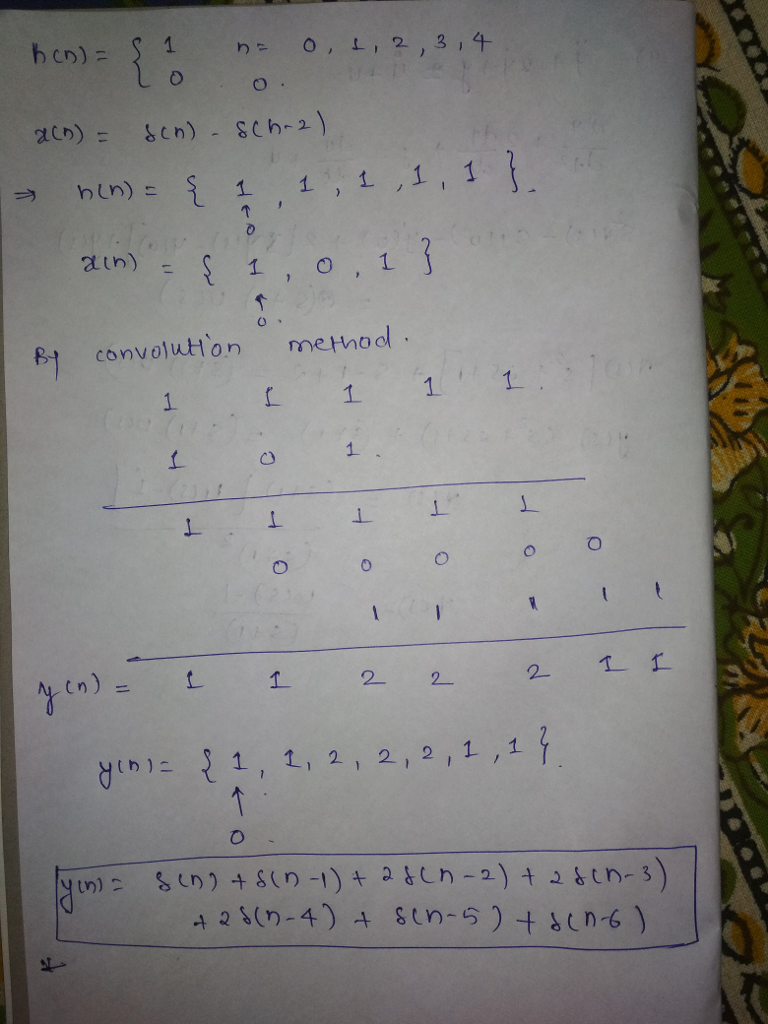 h(n) = { 1 n = 0, 1, 2, 3, 4
0 0.
x(n) = δ(n) - δ(n-2)
⇒ h(n) = { 1, 1, 1, 1, 1 }.
↑
0
x(n) = { 1, 0, 1 }
↑
0.
By convolution method.
1 1 1 1 1
1 0 1.
1 1 1 1 1
0 0 0 0 0
1 1 1 1 1
y(n) = 1 1 2 2 2 1 1
y(n) = { 1, 1, 2, 2, 2, 1, 1 }.
↑
0.
y(n) = δ(n) + δ(n-1) + 2δ(n-2) + 2δ(n-3)
+ 2δ(n-4) + δ(n-5) + δ(n-6)